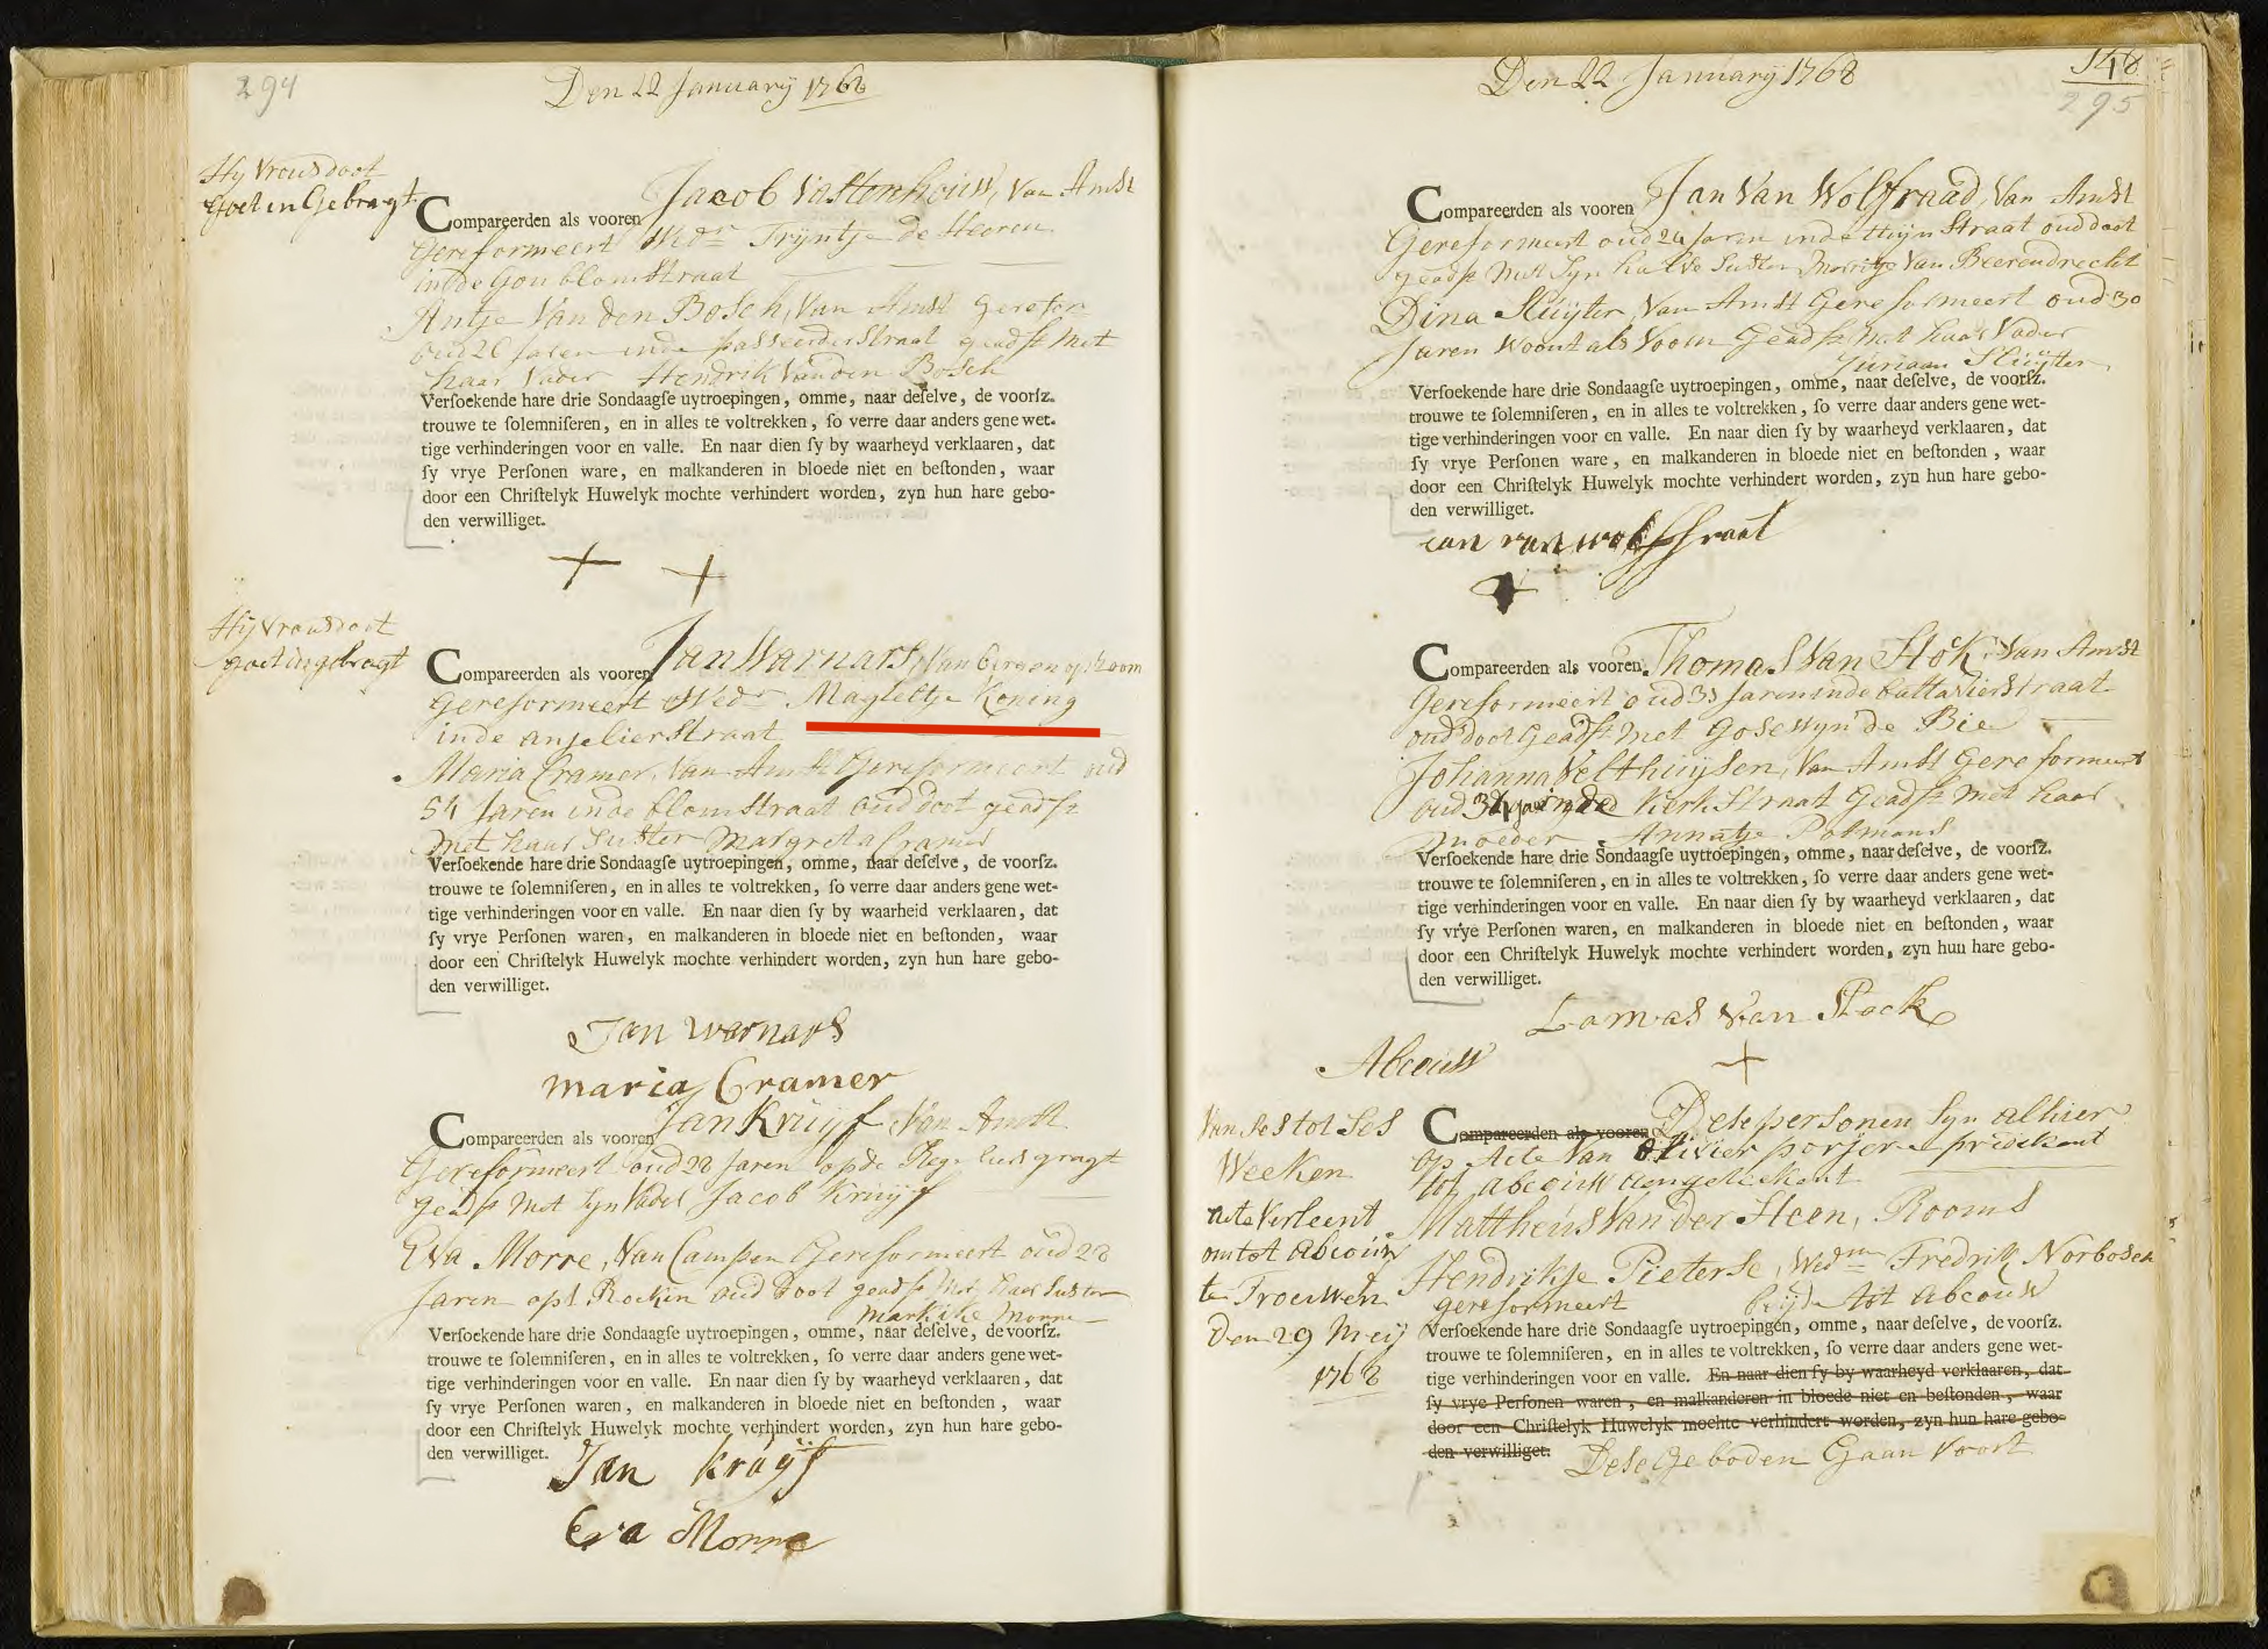 294
Den 22 January 1768
Hy vrouws doot
goet in Gebragt
Jacob Vastenhouw, Van Amst
Compareerden als vooren
Gereformeert Wedr Tryntje de Heeren
in de Goublomstraat
Antje Van den Bosch, Van Amst gerefor
oud 20 Jaren inde passeerderstraat geadst met
haar Vader Hendrik Van den Bosch
Verſoekende hare drie Sondaagſe uytroepingen, omme, naar deſelve, de voorſz.
trouwe te ſolemniſeren, en in alles te voltrekken, ſo verre daar anders gene wet-
tige verhinderingen voor en valle. En naar dien ſy by waarheyd verklaaren, dat
ſy vrye Perſonen ware, en malkanderen in bloede niet en beſtonden, waar
door een Chriſtelyk Huwelyk mochte verhindert worden, zyn hun hare gebo-
den verwilliget.
Hy vrouws doot
goet ingebragt
Compareerden als vooren Jan Warnars, Van Bergen op Zoom
Gereformeert Wedr Magteltje Koning
inde anjelierstraat
Maria Cramer, Van Amst Gereformeert oud
54 Jaren inde blomstraat oud doot geadst
met haar Suster Margreta Cramer
Verſoekende hare drie Sondaagſe uytroepingen, omme, naar deſelve, de voorſz.
trouwe te ſolemniſeren, en in alles te voltrekken, ſo verre daar anders gene wet-
tige verhinderingen voor en valle. En naar dien ſy by waarheid verklaaren, dat
ſy vrye Perſonen waren, en malkanderen in bloede niet en beſtonden, waar
door een Chriſtelyk Huwelyk mochte verhindert worden, zyn hun hare gebo-
den verwilliget.
Jan warnars
maria Cramer
Compareerden als vooren Jan Kruijf Van Amst
Gereformeert oud 28 Jaren op de Reguliersgragt
geadst met Syn Vader Jacob Kruijf
Eva Morre, Van Campen Gereformeert oud 28
Jaren opt Rockin oud doot geadst met haar Suster
Morre
Verſoekende hare drie Sondaagſe uytroepingen, omme, naar deſelve, de voorſz.
trouwe te ſolemniſeren, en in alles te voltrekken, ſo verre daar anders gene wet-
tige verhinderingen voor en valle. En naar dien ſy by waarheyd verklaaren, dat
ſy vrye Perſonen waren, en malkanderen in bloede niet en beſtonden, waar
door een Chriſtelyk Huwelyk mochte verhindert worden, zyn hun hare gebo-
den verwilliget.
Jan kruyf
Eva Morre
Den 22 January 1768
148
295
Compareerden als vooren Jan Van Wolfraad, Van Amst
Gereformeert oud 24 Jaren inde Straat oud doot
geadst met Syn halve Suster Marritje Van Beerendrecht
Dina Sluyter, Van Amst Gereformeert oud 30
Jaren Woont als Voorn Geadst met haar Vader
Juriaan Sluijter
Verſoekende hare drie Sondaagſe uytroepingen, omme, naar deſelve, de voorſz.
trouwe te ſolemniſeren, en in alles te voltrekken, ſo verre daar anders gene wet-
tige verhinderingen voor en valle. En naar dien ſy by waarheyd verklaaren, dat
ſy vrye Perſonen ware, en malkanderen in bloede niet en beſtonden, waar
door een Chriſtelyk Huwelyk mochte verhindert worden, zyn hun hare gebo-
den verwilliget.
van wolfsraat
Compareerden als vooren Thomas Van Stok, Van Amst
Gereformeert oud 33 Jaren inde battavierstraat
oud doot Geadst met Gosewyn de Bie
Johanna Velthuysen, Van Amst Gereformeert
oud Kerkstraat Geadst met haar
moeder Annatje Potmans
Verſoekende hare drie Sondaagſe uytroepingen, omme, naar deſelve, de voorſz.
trouwe te ſolemniſeren, en in alles te voltrekken, ſo verre daar anders gene wet-
tige verhinderingen voor en valle. En naar dien ſy by waarheyd verklaaren, dat
ſy vrye Perſonen waren, en malkanderen in bloede niet en beſtonden, waar
door een Chriſtelyk Huwelyk mochte verhindert worden, zyn hun hare gebo-
den verwilliget.
Tomas Van Stock
Abcouw
Van Ses tot Ses
Weeken
acte Verleent
om tot Abcouw
te Trouwen
Den 29 Meij
1768
Compareerden als vooren Dese personen Syn alhier
op Acte Van Olivier porjere predikant
tot abcouw aengeteekent
Mattheus Van der Steen, Rooms
Hendrikje Pieterse, Wedue Fredrik Norbosch
gereformeert beijde tot abcouw
Verſoekende hare drie Sondaagſe uytroepingen, omme, naar deſelve, de voorſz.
trouwe te ſolemniſeren, en in alles te voltrekken, ſo verre daar anders gene wet-
tige verhinderingen voor en valle. En naar dien ſy by waarheyd verklaaren, dat
ſy vrye Perſonen waren, en malkanderen in bloede niet en beſtonden, waar
door een Chriſtelyk Huwelyk mochte verhindert worden, zyn hun hare gebo-
den verwilliget. Dese Geboden Gaan Voort